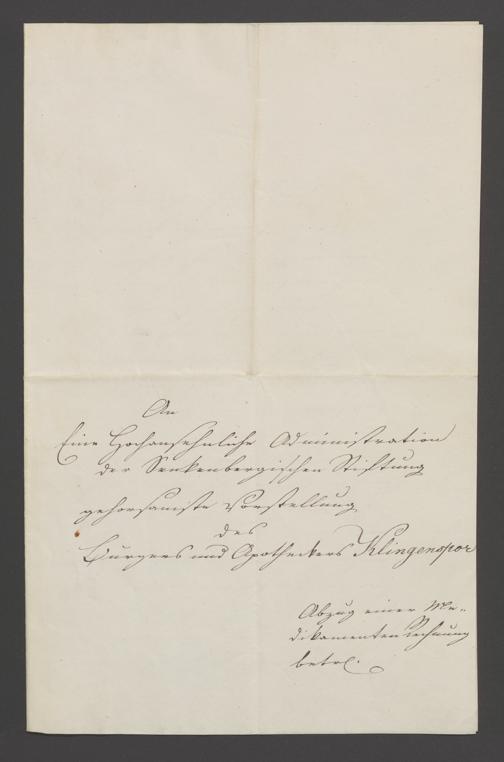 An
Eine Hochansehnliche Administration
der Senkenbergischen Stiftung
gehorsamste Vorstellung
des
Burgers und Apotheckers Klingenspor
Abzug einer Me-
dikamenten Rechnung
betrl.